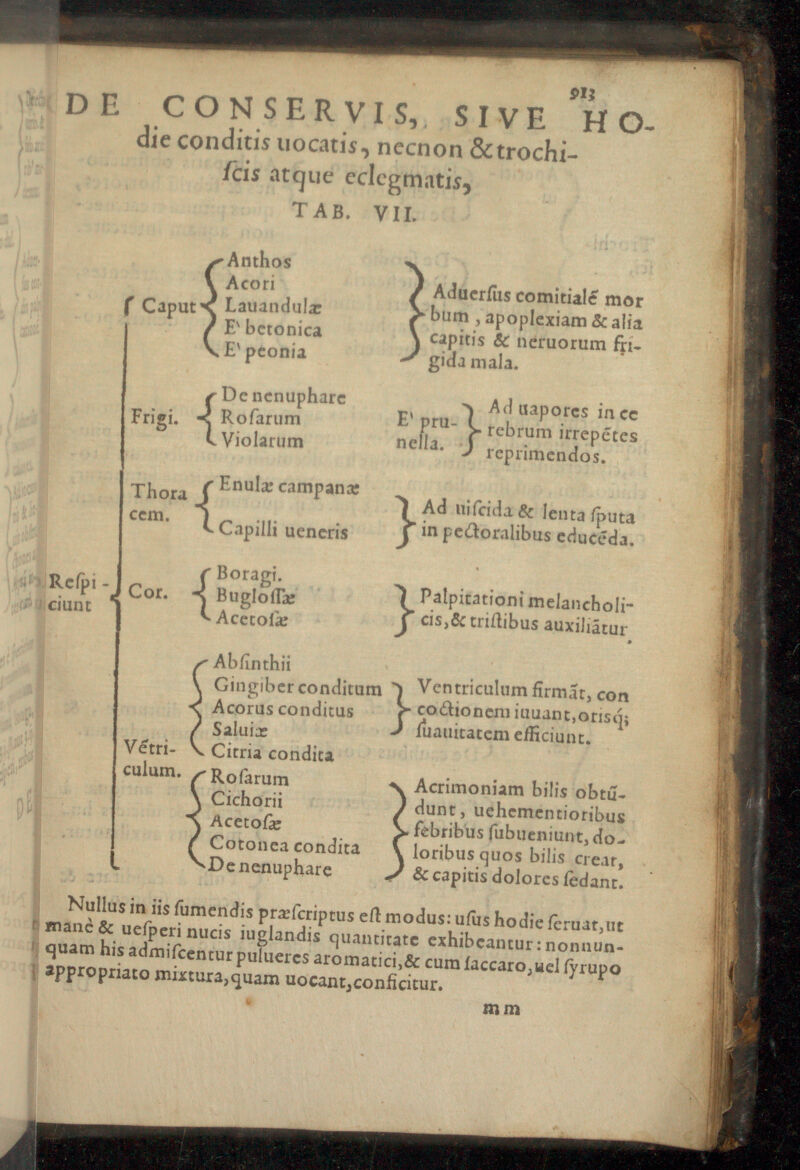 913
DE CONSERVIS, SIVE HO-
die conditis uocatis, necnon & trochi-
ſcis atque eclegmatis,
TAB. VII.
Reſpi-
ciunt
Caput
Anthos
Acori
Lauandulæ
E' betonica
E' peonia
Aduerſus comitialé mor
bum, apoplexiam & alia
capitis & neruorum fri-
gida mala.
Frigi.
De nenuphare
Roſarum
Violarum
E' pru-
nella.
Ad uapores in ce
rebrum irrepétes
reprimendos.
Thora
cem.
Enulæ campanæ
Capilli ueneris
Ad uiſcida & lenta ſputa
in pectoralibus educéda.
Cor.
Boragi.
Bugloſſæ
Acetoſæ
Palpitationi melancholi-
cis, & triſtibus auxiliātur
Vétri-
culum.
Abſinthii
Gingiber conditum
Acorus conditus
Saluiæ
Citria condita
Ventriculum firmāt, con
coctionem iuuant, orisq́;
ſuauitatem efficiunt.
Roſarum
Cichorii
Acetoſæ
Cotonea condita
De nenuphare
Acrimoniam bilis obtū-
dunt, uehementioribus
febribus ſubueniunt, do-
loribus quos bilis crear,
& capitis dolores ſedant.
Nullus in iis ſumendis præſcriptus eſt modus: uſus hodie ſeruat, ut
manè & ueſperi nucis iuglandis quantitate exhibeantur: nonnun-
quam his admiſcentur pulueres aromatici, & cum ſaccaro, uel ſyrupo
appropriato mixtura, quam uocant, conficitur.
mm